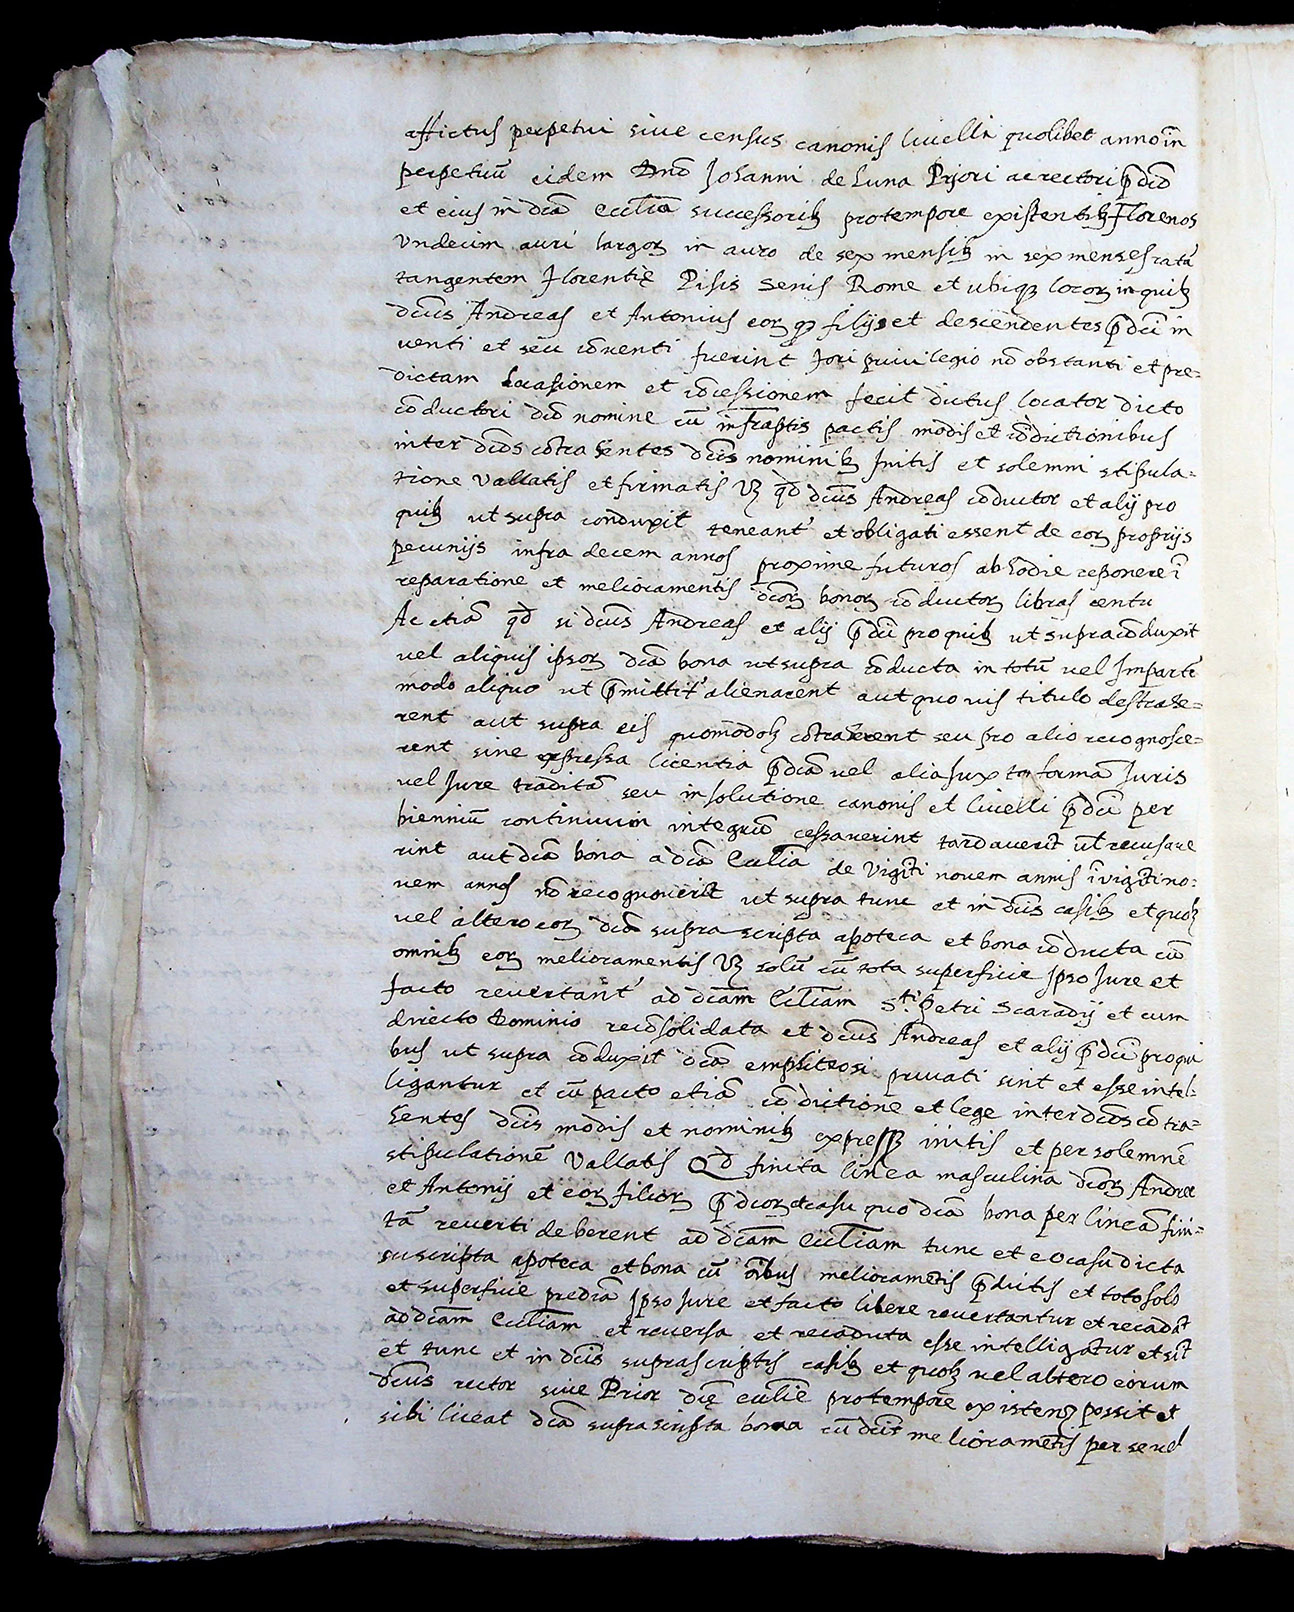 affictus perpetui siue census canonis liuelli quolibet anno in̄
perpetuū eidem Dnō Johanni de Luna Priori ac rectori p̄dcō
et eius in dcā ecclīa successoribȝ pro tempore existentibȝ Florenos
Vndecim auri largoꝝ in auro de sex mensibȝ in sex menses rata
tangentem Florentię Pisis Senis Rome et ubiqꝫ locoꝝ in quibȝ
dcūs Andreas et Antonius eoꝝ qꝫ filij et descendentes p̄dcī in
uenti et seu cōuenti fuerint fori priuilegio nō obstanti et pre=
dictam locasionem et cōcessionem fecit dictus locator dicto
cōductori dcō nomine cū infrap̄tis pactis modis et cōdictionibus
inter dcōs cōtrahentes dcīs nominibȝ Initis et solemni stipula=
tione Vallatis et firmatis Vȝ qd̄ dcūs Andreas cōductor et alij pro
quibȝ ut supra conduxit teneant' et obligati essent de eoꝝ proprijs
pecunijs infra decem annos proxime futuros ab hodie reponere ī
reparatione et melioramentis dcōꝝ bonoꝝ cōductoꝝ libras centū
Ac etiā qd̄ si dcūs Andreas et alij p̄dcī pro quibȝ ut supra cōduxit
uel aliquis ipsoꝝ dcā bona ut supra cōducta in totū uel Imparte
modo aliquo ut p̄mittit' alienarent aut quo uis titulo destrahe=
rent aut supra eis quomodolȝ cōtraherent seu pro alio recognosce=
rent sine expressa licentia p̄dcā uel alias iuxta formā Juris
uel Jure traditā seu in solutione canonis et liuelli p̄dcī per
biennium continuum integrū cessauerint tardauerīt ul̄ recusaue
rint aut dcā bona a dcā ecclīa de Viginti nouem annis ī viginti no=
uem annos nō recognouerit ut supra tunc et in dcīs casibȝ et quolȝ
uel altero eoꝝ dcā suprascripta apoteca et bona cōducta cū
omnibȝ eoꝝ melioramentis Vȝ solū cū tota superficie Ipso Jure et
facto reuertant' ad dcām Ecclīam S.ti Petri Scaradij et cum
directo Dominio recōsolidata et dcūs Andreas et alij p̄dcī pro qui
bus ut supra cōduxit dcā emphiteosi priuati sint et esse intel=
ligantur et cū pacto etiā cōdictione et lege inter dcōs cōtra=
hentes dcīs modis et nominibȝ expresse initis et per solemnē
stipulationē Vallatis Qd̄ finita linea masculina dcōꝝ Andreę
et Antonij et eoꝝ filioꝝ p̄dcōꝝ et casu quo dcā bona per lineā fini=
tā reuerti deberent ad dcām ecclīam tunc et eo casu dicta
suscripta apoteca et bona cū ōibus melioramētis p̄dictis et toto solo
et superficie predcā Ipso Jure et facto libere reuertantur et recadāt
ad dcām Ecclīam et reuersa et recaduta esse intelligātur et sīt
et tunc et in dcīs suprascriptis casibȝ et quolȝ uel altero eorum
dcūs rector siue Prior dcę ecclīe pro tempore existens possit et
sibi liceat dcā suprascripta bona cū dcīs melioramētis per se uel